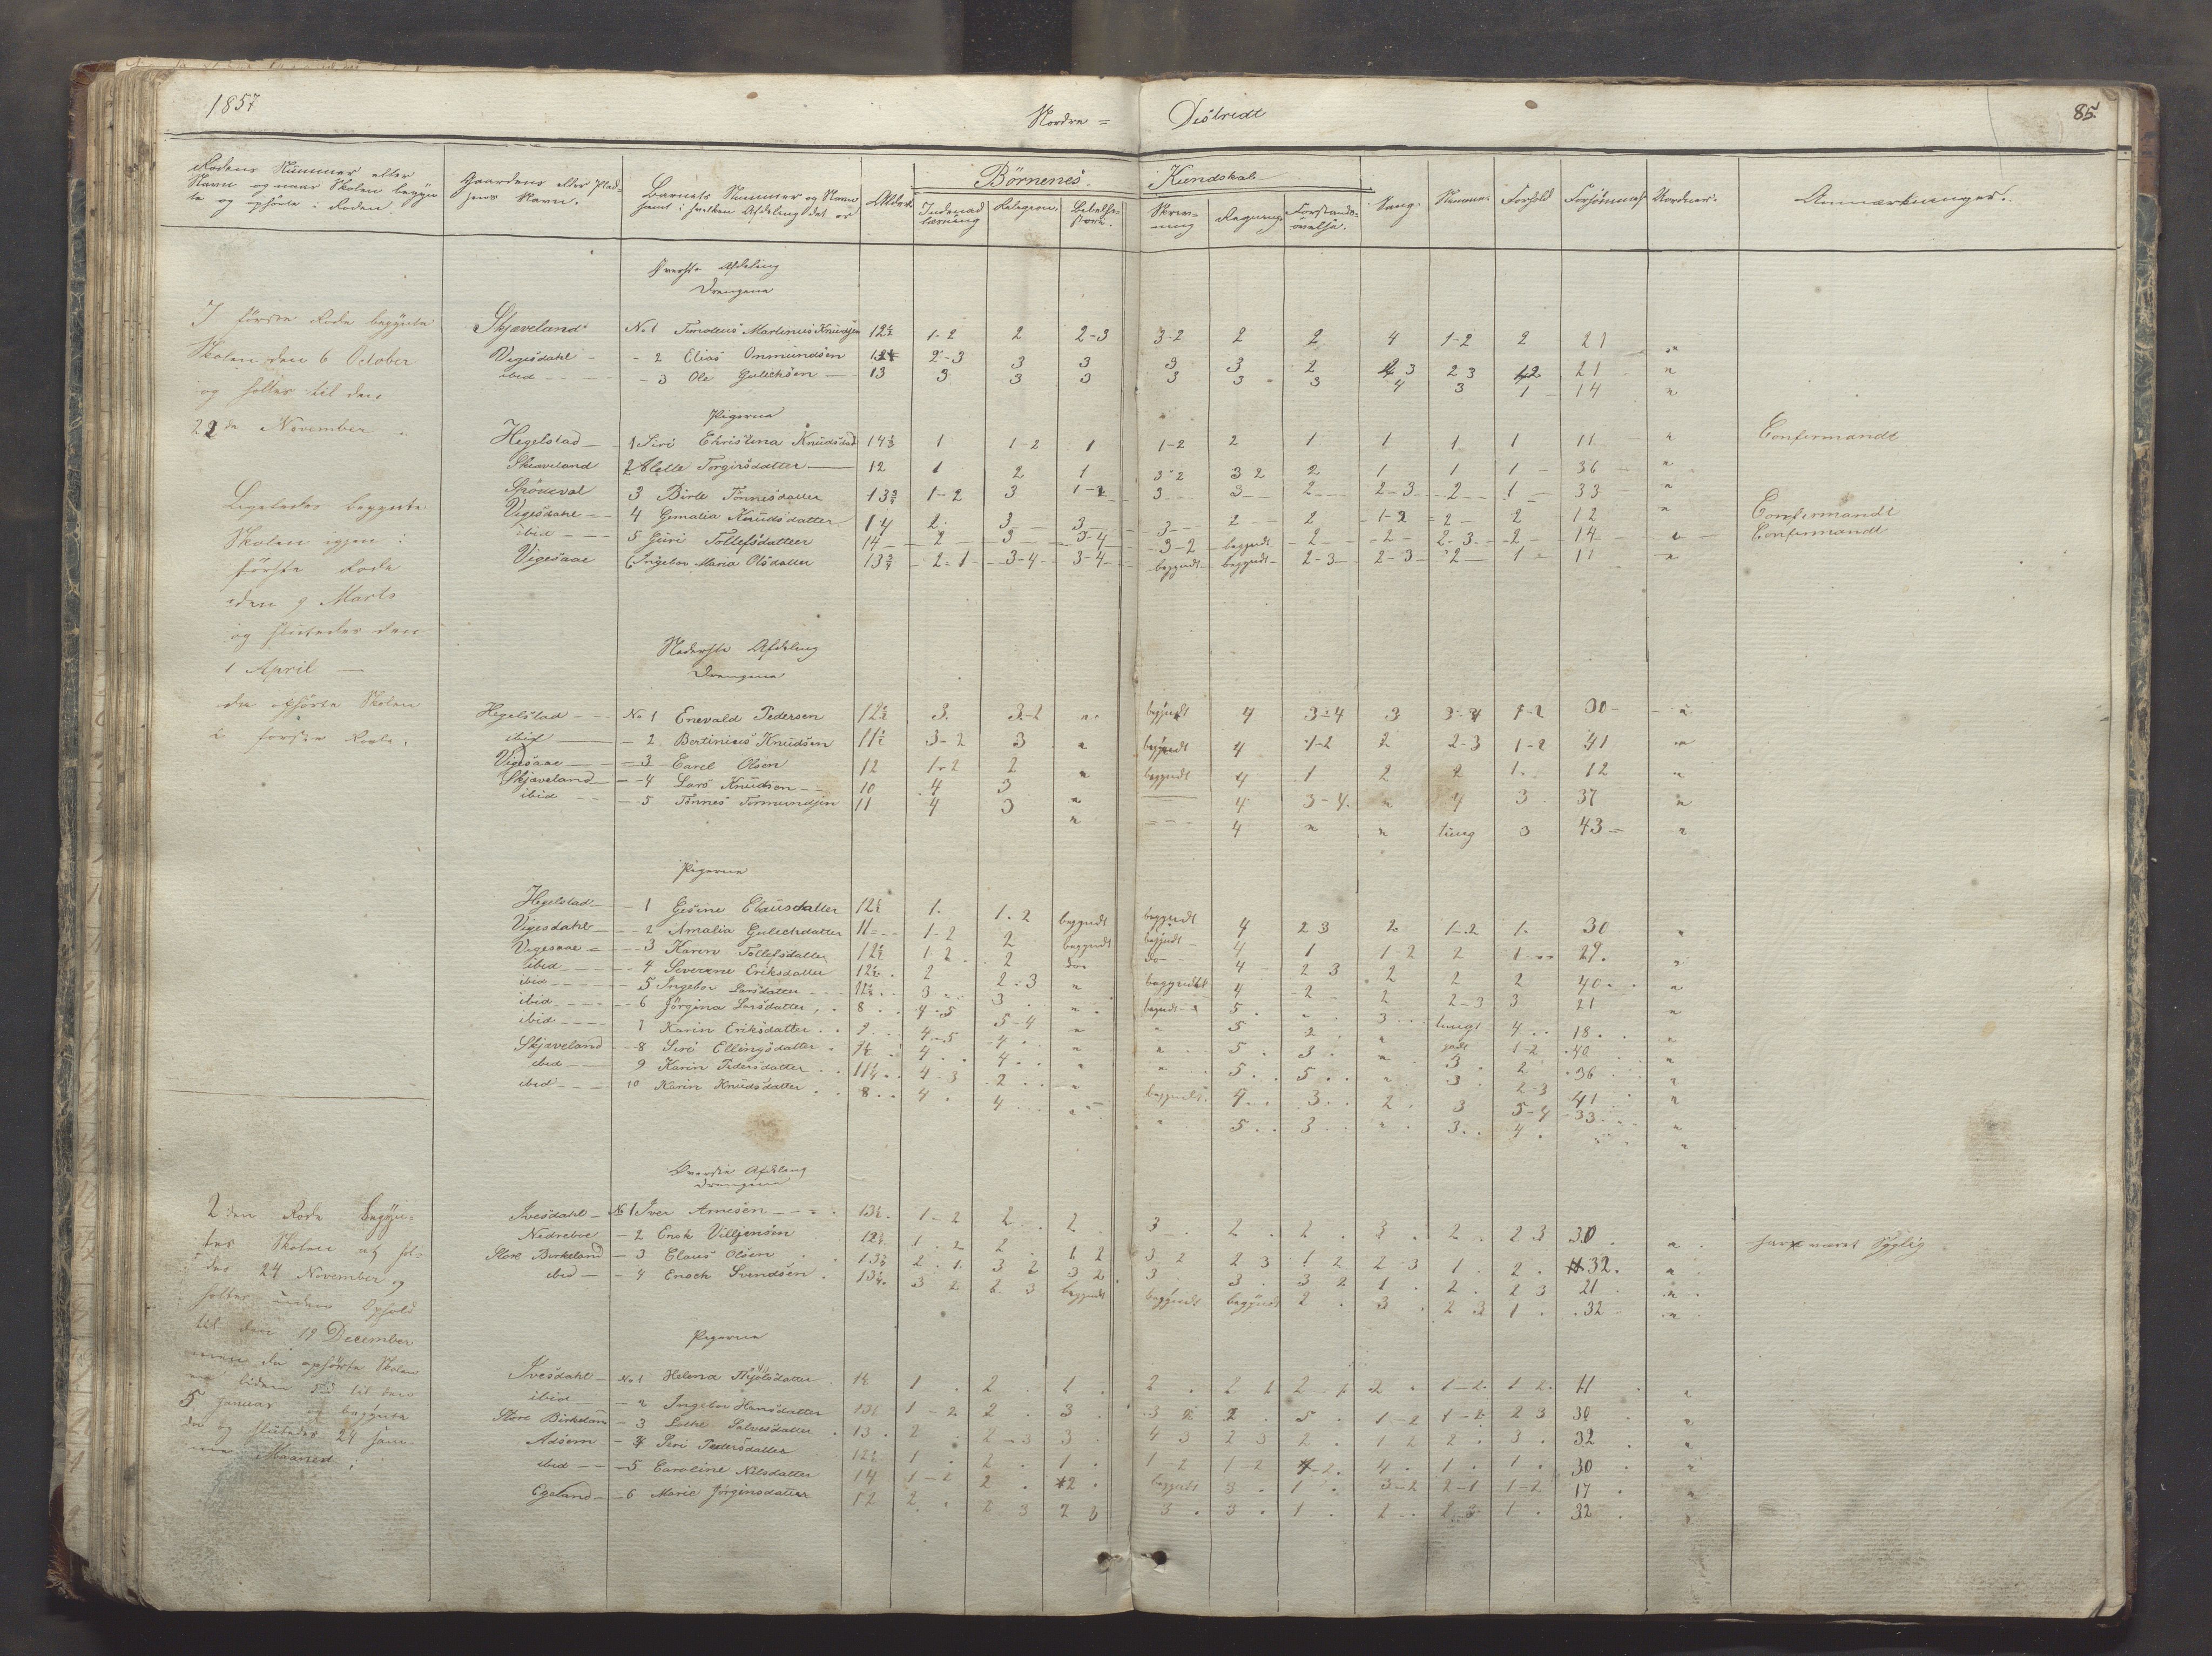 1857
Nordre = Distrect
85
Rodens Nummer eller
Navn og naar Skolen begyn
te og ophörte i Roden
Gaardens eller Plad-
sens Navn.
Barnets Nummer og Navn
samt i hvilken Afdeling det er
Alder
Börnenes Kundskab
Indenad
læsning
Relegion
Bibelhi-
storie.
Skriv-
ning
Regning
Forstands-
øvelse.
Sang
Nemme
Forhold
Forsömmelser
Uordner.
Anmærkninger.
Øverste Afdeling
Drengene
I förste Rode begynte
Skolen den 6 October
og holtes til den
22de November.
Skjæveland No 1 Timoteus Martinus Knudsen 12½ 1-2 2 2-3 3-2 2 2 4 1-2 2 21 "
Vigesdahl - 2 Elias Ommundsen 2-3 3 3 3 3 2 3 2 3 21 "
ibid - 3 Ole Gulichsen 13 3 3 3 3 3 3 4 3 1 14 "
Pigerne
Hegelstad 1 Siri Christina Knudsdat 14½ 1 1-2 1 1-2 2 1 1 1 1 11 " Confirmandt
Skiæveland 2 Alette Torgirsdatter 12 1 2 1 3-2 3 2 2 1 1 1 36 "
Spödevol 3 Birte Tönnisdatter 13¾ 1-2 3 3 3 2 2-3 2 1 33 "
Vigesdahl 4 Gemalia Knudsdatter 14 2 3 3 3 2 2 1-2 2 2 12 " Confirmandt
ibid 5 Guri Tollefsdatter 14 2 3 3-4 3-2 begyndt 2 2 2-3 2 14 " Confirmandt
Vigesaae 6 Ingebor Maria Olsdatter 13¾ 2-1 3-4 3-4 begyndt begyndt 2-3 2-3 2 1 11 "
Ligeledes begynte
Skolen igjen i
förste Rode
den 9 Marts
og sluttedes den
1 April
da ophörte Skolen
i förste Rode.
Nederste Afdeling
Drengene
Hegelstad No 1 Enevald Pedersen 12½ 3 3-2 " begyndt 4 3-4 3 3-4 1-2 30 "
ibid - 2 Bertinius Knudsen 11½ 3-2 3 " begyndt 4 1-2 2 2-3 1-2 41 "
Vigesaae - 3 Carel Olsen 12 1-2 2 " begyndt 4 1 2 2 1 12 "
Skjæveland - 4 Lars Knudsen 10 4 3 " 4 3-4 " 4 3 37 "
ibid - 5 Tönnes Tormundsen 11 4 3 " 4 " " tung 3 43 "
Pigerne
Hegelstad - 1 Gesine Clausdatter 12½ 1 1-2 begyndt begyndt 4 2 3 2 1-2 1 30 "
Vigesdahl - 2 Amalia Gulichdatter 11 1-2 2 begyndt begyndt 4 1 1 2 2 1 29 "
Vigesaae - 3 Karin Tollefsdatter 12½ 1 2 2 do do 4 2 3 2 2 2 40 "
ibid - 4 Severine Eriksdatter 12½ 2 2-3 " begyndt 4 2 2 2-3 3 21 "
ibid - 5 Ingebor Larsdatter 3 3 " begyndt 5 " 3 tungt 4 18 "
ibid - 6 Jörgina Larsdatter 8 4-5 5-4 " " 5 2 " 1-2 40 "
ibid 7 Karin Eriksdatter 9 4-5 4 " " 5 3 " 3 2 36 "
Skjæveland - 8 Siri Ellingsdatter 4 4 " " 5 5 " 3 2-3 41 "
ibid 9 Karin Pedersdatter 11½ 4-3 2 " begyndt 4 3 2 3 5-4 33 "
ibid 10 Karin Knudsdatter 8 4 4 " " 5 3 " 3 4 "
Øverste Afdeling
Drengene
2den Rode begyn-
tes Skolen at hol-
des 24 November og
holtes uden Ophold
til den 19 December
men da ophörte Skolen
en liden Tid til den
5 Januar og begynte
da og sluttedes 24 sam-
me Maaned.
Ivesdahl No 1 Iver Arnesen 13½ 1-2 2 2 3 2 2 3 2 2 3 30 " har været Syglig
Nedreboe - 2 Enok Villjemsen 12½ 1 2 2 1 2 3 2 2 3 1 2 2 3 1 2 32 "
Store Birkeland - 3 Claus Olsen 13½ 2 1 3 2 3 2 3 3 3 2 1 2 2 3 21 "
ibid - 4 Enoch Svendsen 13½ 3 2 2 3 begyndt begyndt begyndt 2 3 2 3 1 32 "
Pigerne
Ivesdahl No 1 Helena Thjölsdatter 14 1 2 1 2 2 1 2 1 2 1-2 1 2 11 "
ibid 2 Ingebor Hansdatter 13½ 1-2 2 3 3 2 2 5 1-2 1-2 2 3 30 "
Store Birkelan - 3 Lothe Salvesdatter 13 2 2-3 3 4 3 2 3 2 1 2 2 3 32 "
Adsem 4 Siri Pedersdatter 12½ 1 2 1 1 2 1-2 4 1 1 30 "
ibid 5 Caroline Nilsdatter 14 1-2 2 2 begyndt 3 1 3-2 2-1 1-2 17 "
Egeland 6 Marie Jörginsdatter 12 2 2 3 3 3 1 2 1 32 "